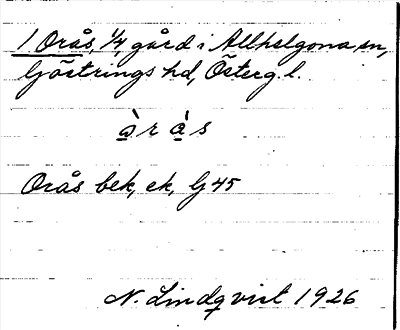 1 Orås, 1/4, gård i Allhelgona sn,
Göstrings hd, Österg l.
ò̱ r à̱ s
Orås bek, ek, G 45
N. Lindqvist 1926